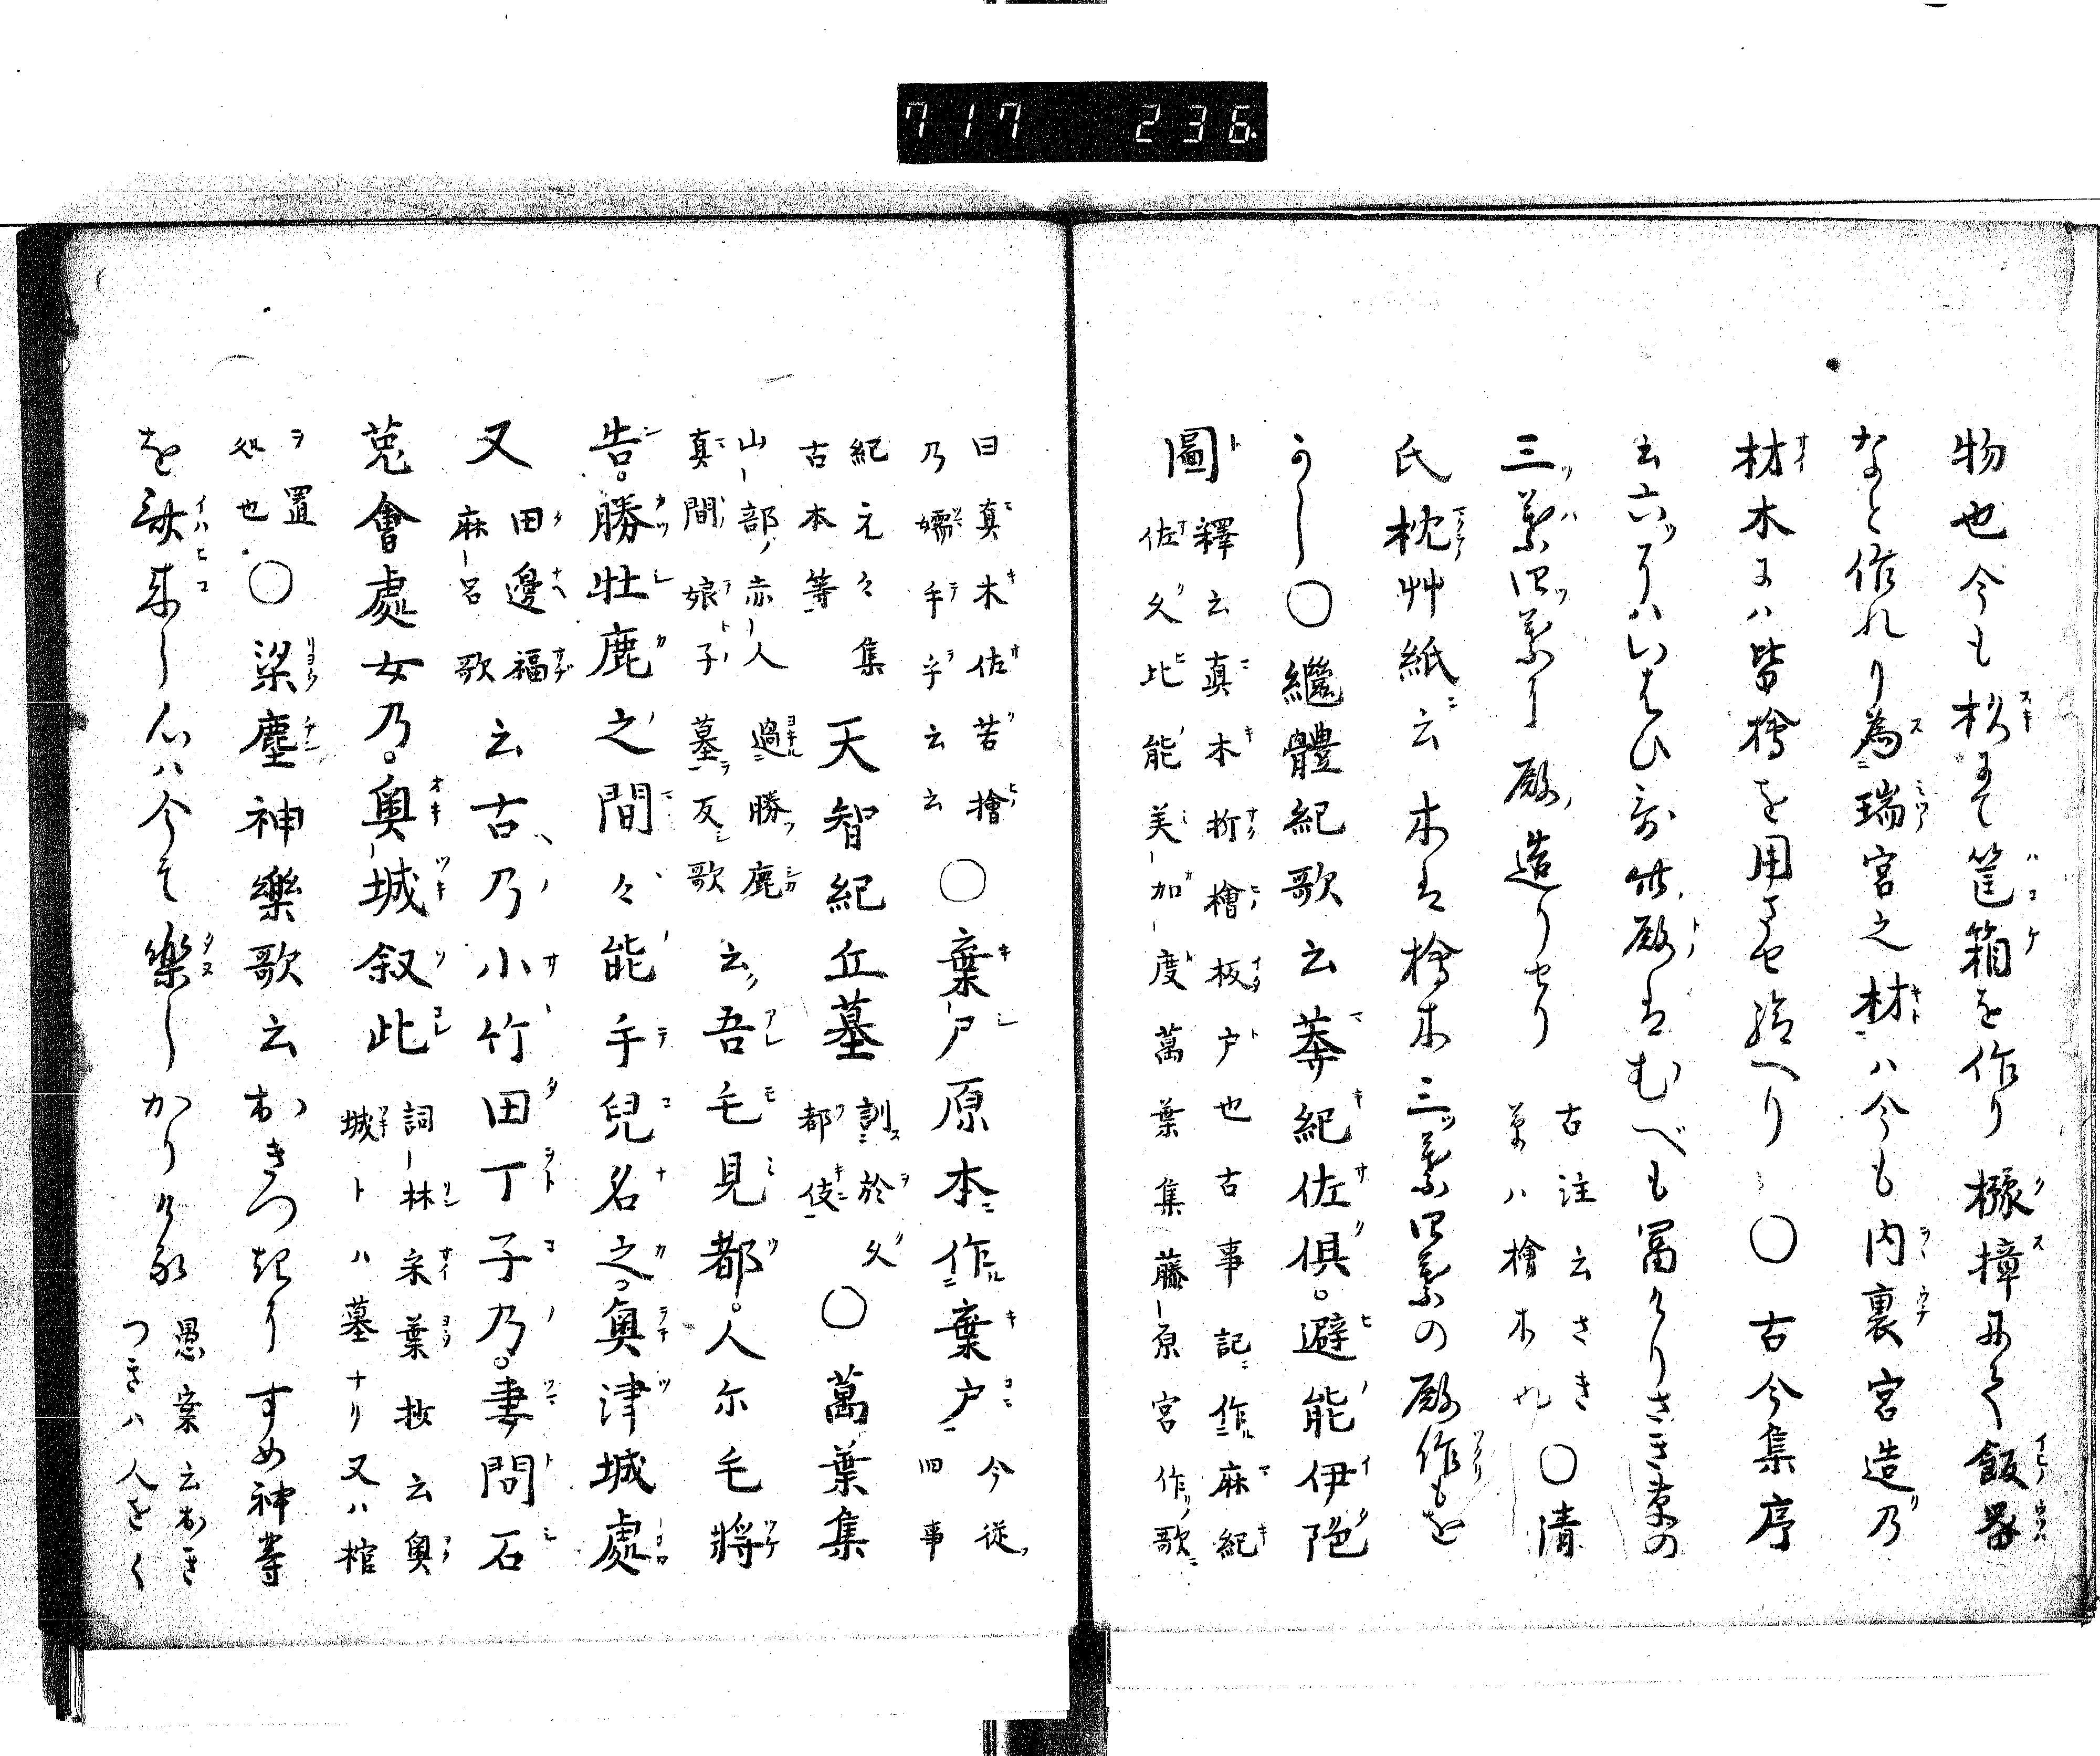 717 236
物也今も杉にて筐箱を作り櫲樟にて飯器
なと作れり為瑞宮之材ハ今も内裏宮造乃
材木にハ皆檜を用させ給へり〇古今集序
云六にハいはひ歌此殿はむべも冨けりさき草の
三葉四葉に殿造りせり 古注云さき 草ハ檜木也 〇清
氏枕艸紙云木は檜木三葉四葉の殿作もを
かし〇繼體紀歌云莽紀佐倶。避能伊陁
圖 釋云真木折檜板戸也古事記作麻紀 佐久比能美加度萬葉集藤原宮作歌
曰真木佐苦檜 乃嬬手乎云云 〇棄戸原本作棄戸 今従 旧事
紀元々集 古本等 天智紀丘墓 訓於久 都伎 〇萬葉集
山部赤人過勝鹿 真間娘子墓反歌 云吾毛見都。人尓毛將
告。勝牡鹿之間々能手兒名之。奥津城處
又 田邊福 麻呂歌 云古乃小竹田丁子乃。妻問石
菟會處女乃。奥城叙此 詞林采葉抄云奥 城トハ墓ナリ又ハ棺
ヲ置 処也 〇梁塵神樂歌云おきつ すめ神等
を 来し心ハ今そ樂しかりける 愚案云おき つきハ人をく